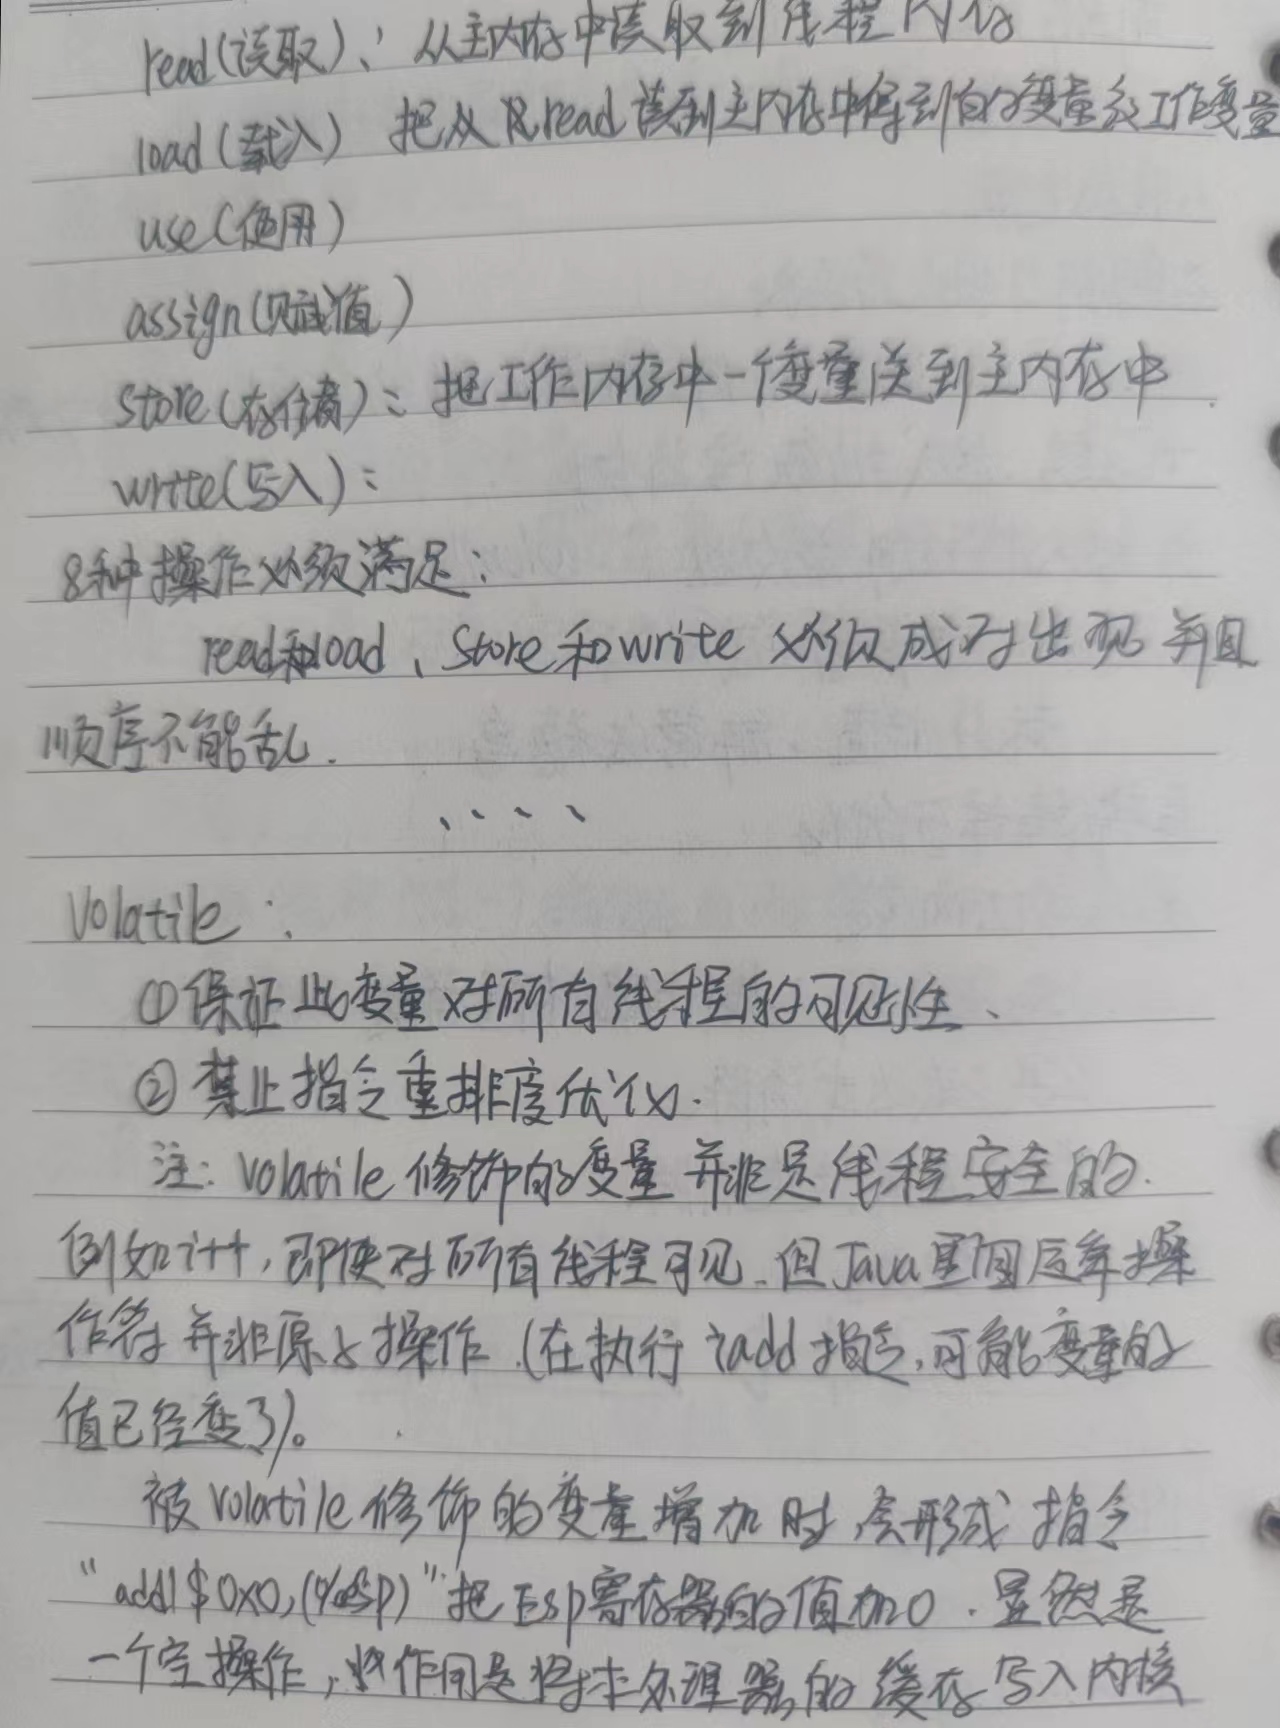 read(读取)：从主内存中读取到线程内存
load(载入) 把从 read 读到主内存中得到的变量放工作变量
use(使用)
assign(赋值)
store(存储)：把工作内存中一个变量送到主内存中.
write(写入)：
8种操作必须满足：
read和load、store和write 必须成对出现 并且
顺序不能乱.
、、、、
Volatile：
①保证此变量对所有线程的可见性、
②禁止指令重排序优化.
注：volatile修饰的变量并非是线程安全的.
例如i++,即使对所有线程可见.但Java里面运算操
作符并非原子操作.(在执行iadd指令,可能变量的
值已经变了)。
被volatile修饰的变量增加时,会形成指令
"addl $0x0,(%esp)"把Esp寄存器的值加0.显然是
一个空操作,其作用是将本处理器的缓存写入内核